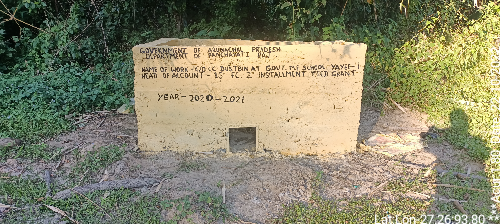 GOVERNMENT OF ARUNACHAL PRADESH
DEPARTMENT OF PANCHAYATI RAJ
NAME OF WORK - C/O CC DUSTBIN AT GOVT. M.E SCHOOL YAYEE-I
HEAD OF ACCOUNT - 15th FC. 2nd INSTALLMENT TIED GRANT
YEAR - 2020 - 2021
Lat Lon 27.26 93.80